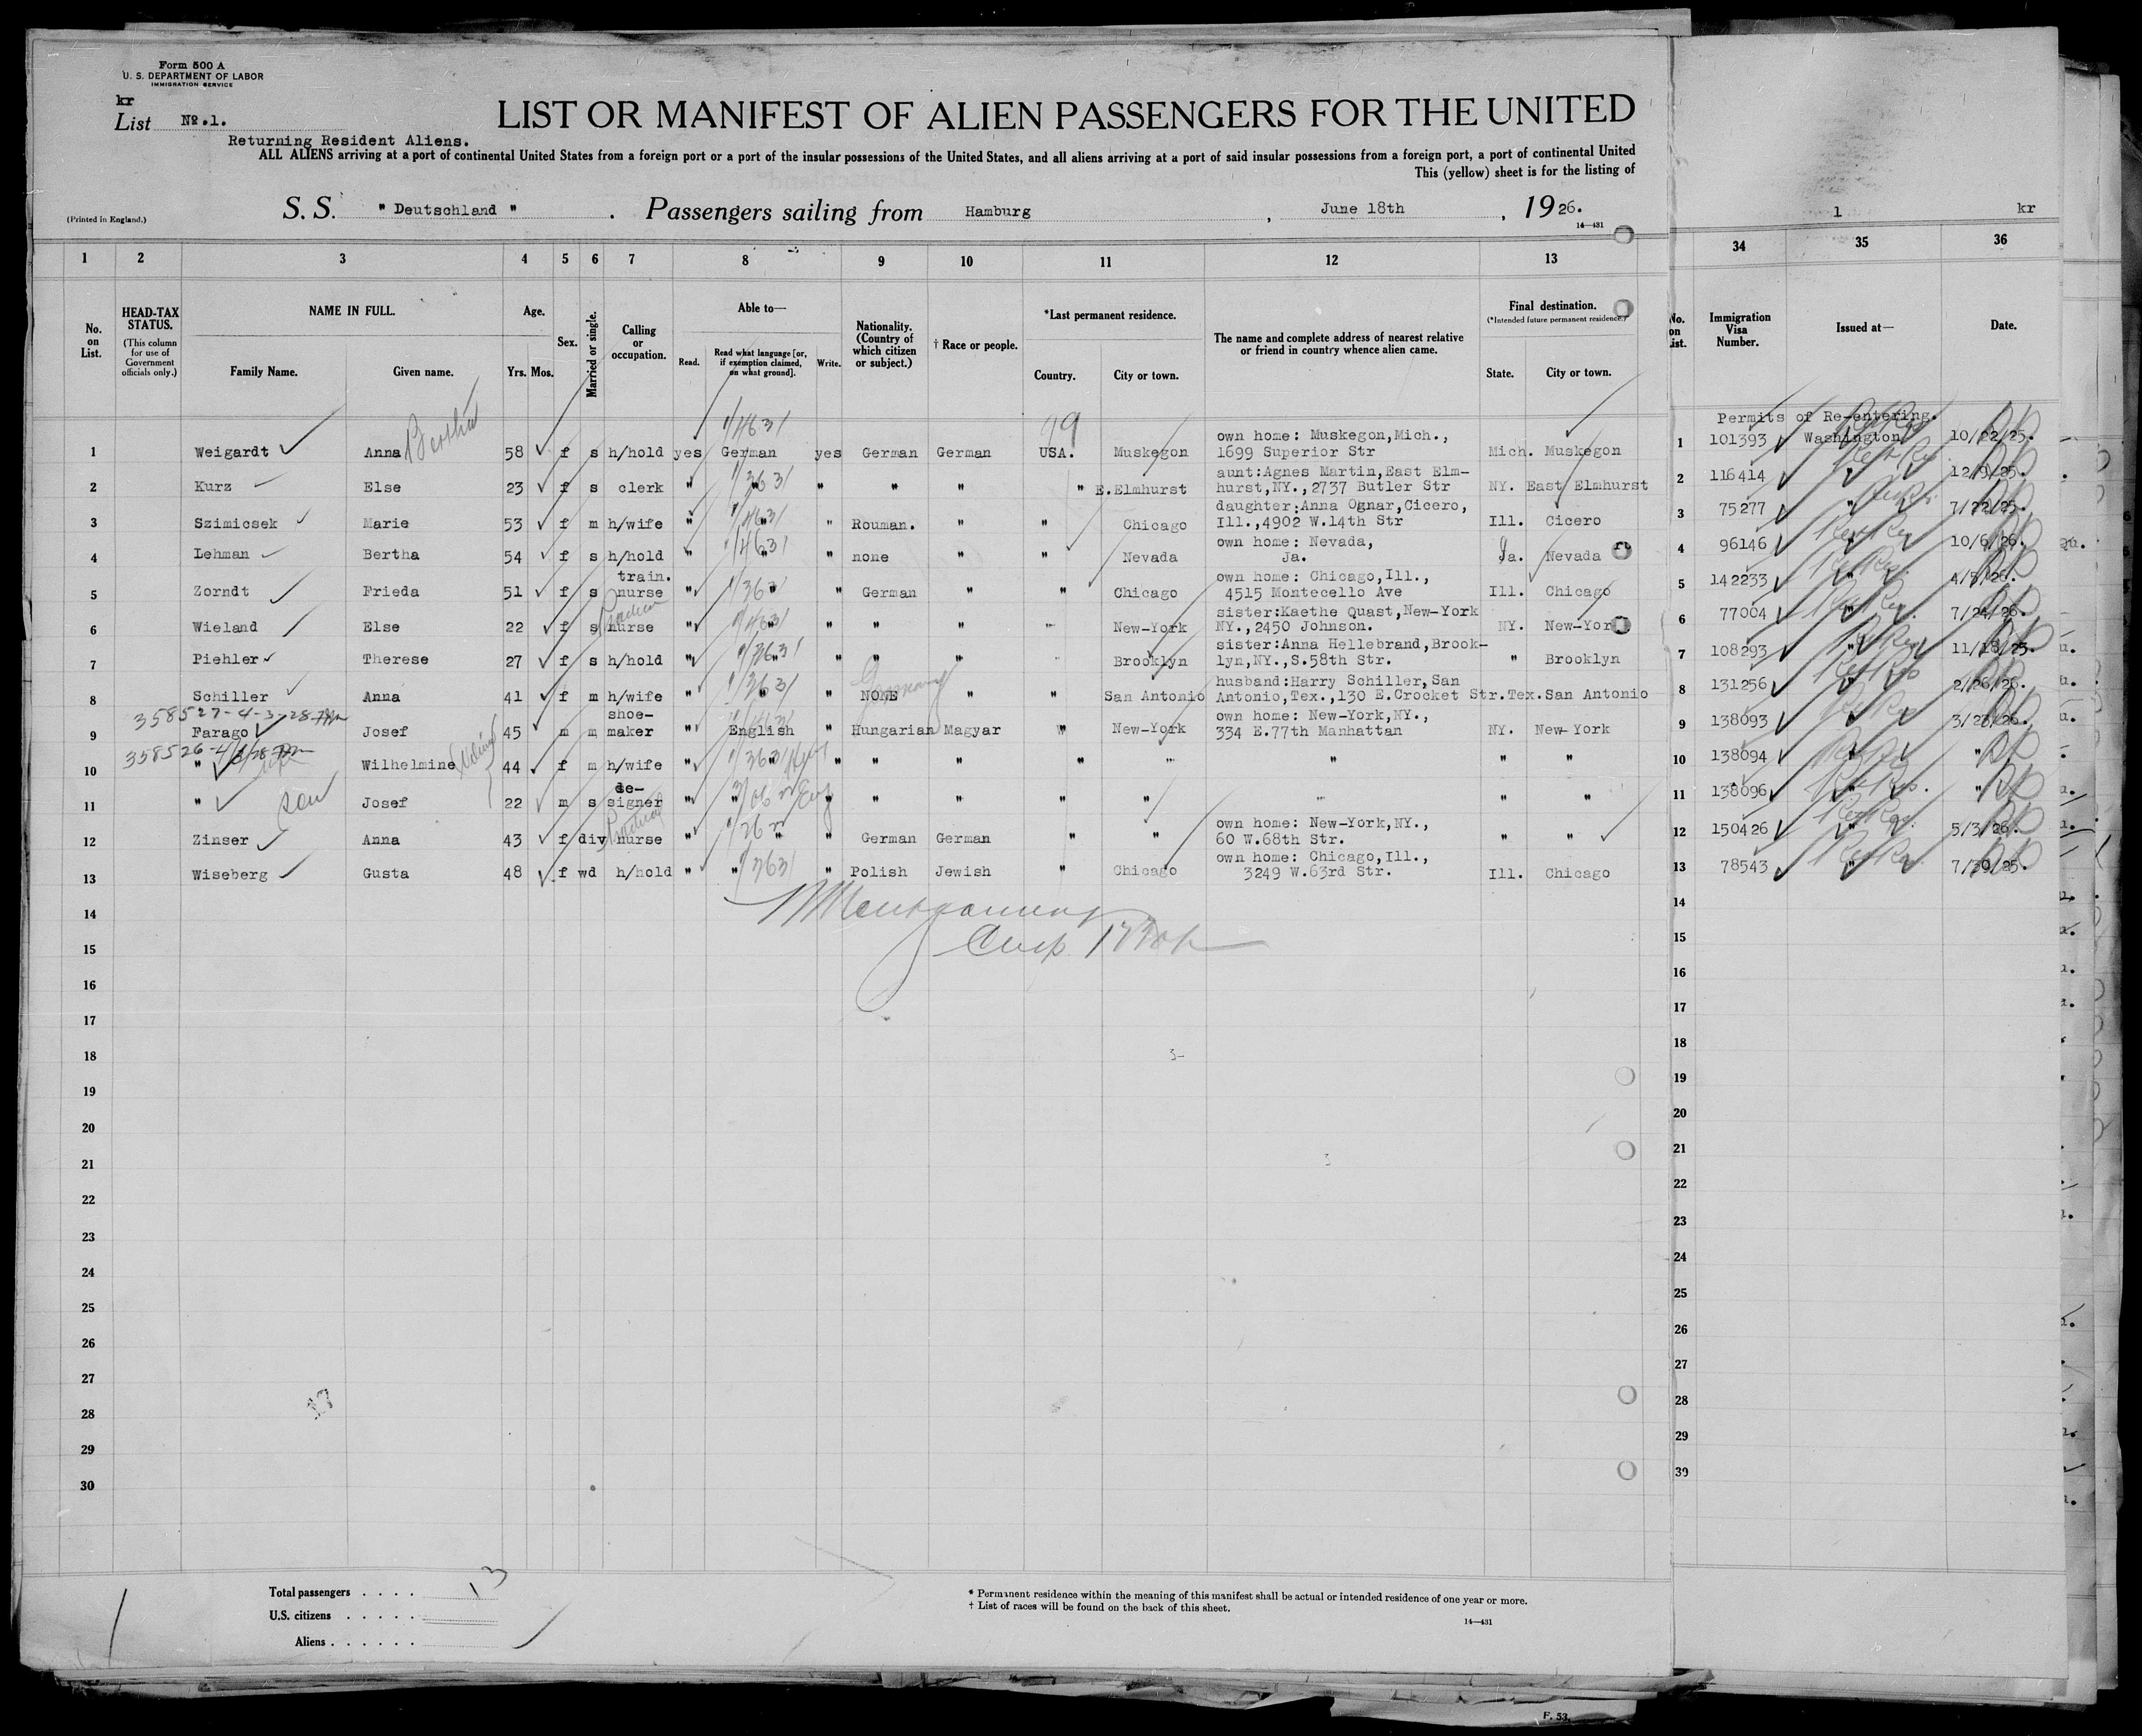 Form 500 A
U. S. DEPARTMENT OF LABOR
IMMIGRATION SERVICE
kr
List No.1.
LIST OR MANIFEST OF ALIEN PASSENGERS FOR THE UNITED
Returning Resident Aliens.
ALL ALIENS arriving at a port of continental United States from a foreign port or a port of the insular possessions of the United States, and all aliens arriving at a port of said insular possessions from a foreign port, a port of continental United
This (yellow) sheet is for the listing of
(Printed in England.) S. S. " Deutschland " . Passengers sailing from Hamburg , June 18th , 1926. 1 kr
14—431
1 2 3 4 5 6 7 8 9 10 11 12 13 34 35 36
No. on List. HEAD-TAX STATUS. (This column for use of Government officials only.) NAME IN FULL. Family Name. Given name. Age. Yrs. Mos. Sex. Married or single. Calling or occupation. Able to— Read. Read what language [or, if exemption claimed, on what ground]. Write. Nationality. (Country of which citizen or subject.) † Race or people. *Last permanent residence. Country. City or town. The name and complete address of nearest relative or friend in country whence alien came. Final destination. (*Intended future permanent residence.) State. City or town. No. on List. Immigration Visa Number. Issued at— Date.
Bertha 1/4631 99 Permits of Re-entering.
own home: Muskegon,Mich.,
1 Weigardt Anna 58 f s h/hold yes German yes German German USA. Muskegon 1699 Superior Str Mich. Muskegon 1 101393 Washington 10/22/25.
aunt:Agnes Martin,East Elm-
2 Kurz Else 23 f s clerk " " " " " " E.Elmhurst hurst,NY.,2737 Butler Str NY. East Elmhurst 2 116414 " 12/9/25.
daughter:Anna Ognar,Cicero,
3 Szimicsek Marie 53 f m h/wife " " " Rouman. " " Chicago Ill.,4902 W.14th Str Ill. Cicero 3 75277 " 7/22/25.
own home: Nevada,
4 Lehman Bertha 54 f s h/hold " " " none " " Nevada Ja. Ja. Nevada 4 96146 " 10/6/26.
train. own home: Chicago,Ill.,
5 Zorndt Frieda 51 f s nurse " " " German " " Chicago 4515 Montecello Ave Ill. Chicago 5 142233 " 4/5/26.
sister:Kaethe Quast,New-York
6 Wieland Else 22 f s nurse " " " " " " New-York NY.,2450 Johnson. NY. New-York 6 77004 " 7/24/26.
sister:Anna Hellebrand,Brook-
7 Piehler Therese 27 f s h/hold " " " " " Brooklyn lyn,NY.,S.58th Str. " Brooklyn 7 108293 " 11/18/25.
Germany husband:Harry Schiller,San
8 Schiller Anna 41 f m h/wife " " " NONE " " San Antonio Antonio,Tex.,130 E.Crocket Str.Tex.San Antonio 8 131256 " 2/26/26.
358527-4-3-28 shoe- own home: New-York,NY.,
9 Farago Josef 45 m m maker " English " Hungarian Magyar " New-York 334 E.77th Manhattan NY. New-York 9 138093 " 3/23/26.
358526-4/3/28 wife
10 " Wilhelmine 44 f m h/wife " " " " " " " " " " 10 138094 " "
son de-
11 " Josef 22 m s signer " " " " " " " " " " 11 138096 " "
own home: New-York,NY.,
12 Zinser Anna 43 f div nurse " " " German German " " 60 W.68th Str. " " 12 150426 " 5/3/26.
own home: Chicago,Ill.,
13 Wiseberg Gusta 48 f wd h/hold " " " Polish Jewish " Chicago 3249 W.63rd Str. Ill. Chicago 13 78543 " 7/30/25.
14 Montgomery 14
15 15
16 16
17 17
18 18
19 19
20 20
21 21
22 22
23 23
24 24
25 25
26 26
27 27
28 28
29 29
30 30
Total passengers . . . . 13
U.S. citizens . . . . .
Aliens . . . . . .
* Permanent residence within the meaning of this manifest shall be actual or intended residence of one year or more.
† List of races will be found on the back of this sheet.
14—431
F. 53.